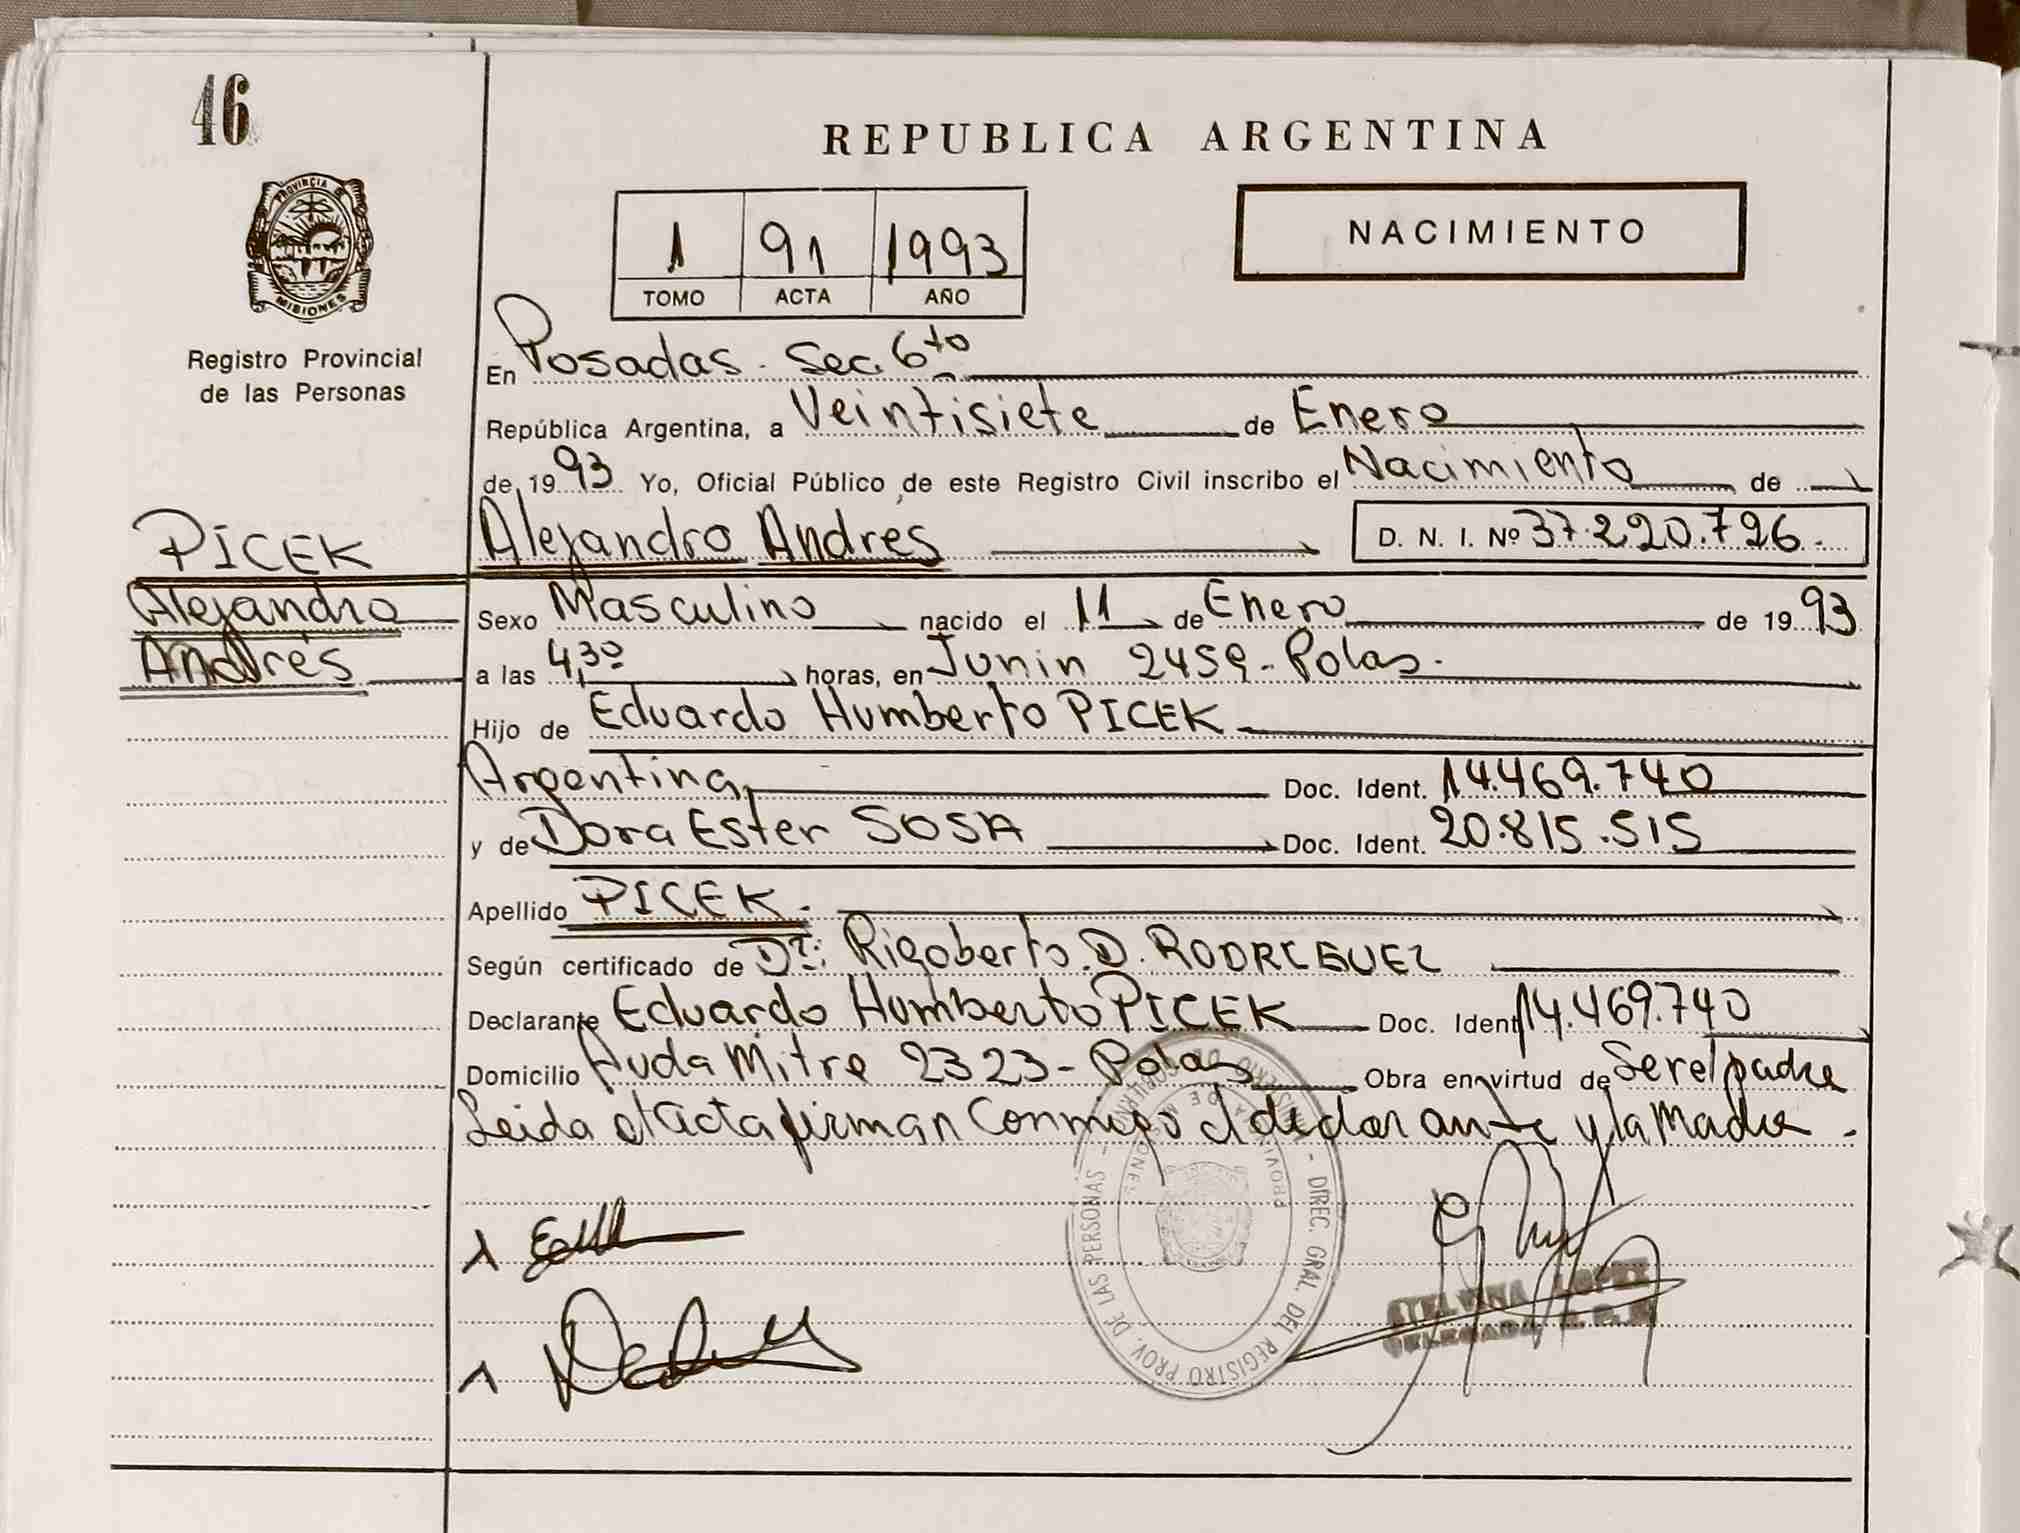 46
REPUBLICA ARGENTINA
PROVINCIA DE MISIONES
1 91 1993
TOMO ACTA AÑO
NACIMIENTO
Registro Provincial
de las Personas
En Posadas. Sec. 6to
República Argentina, a Veintisiete de Enero
de 1993 Yo, Oficial Público de este Registro Civil inscribo el Nacimiento de
PICEK
Alejandro
Andrés
Alejandro Andrés D. N. I. Nº 37.220.726.
Sexo Masculino nacido el 11 de Enero de 1993
a las 4,30 horas, en Junin 2459 - Pdas.
Hijo de Eduardo Humberto PICEK
Argentina, Doc. Ident. 14.469.740
y de Dora Ester SOSA Doc. Ident. 20.815.515
Apellido PICEK.
Según certificado de Dr: Rigoberto. D. RODRIGUEZ
Declarante Eduardo Humberto PICEK Doc. Ident 14.469.740
Domicilio Avda Mitre 2323 - Pdas Obra en virtud de Ser el padre
Leida el Acta firman conmigo el declarante y la Madre.
DIREC. GRAL. DEL REGISTRO PROV. DE LAS PERSONAS -
LOPEZ
DELEGADA R. P. P.